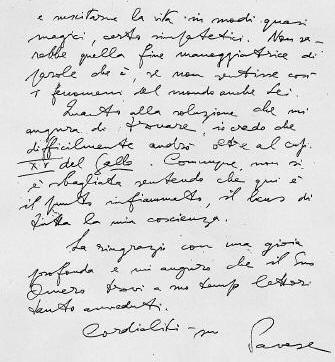 e suscitarne la vita in modi quasi
magici, certo simpatetici. Non sa-
rebbe quella fine maneggiatrice di
parole che è, se non sentisse così
i fenomeni del mondo anche Lei.
Quanto alla soluzione che mi
augura di trovare, io credo che
difficilmente andrò oltre al cap.
XV del Gallo. Comunque, non si
è sbagliata sentendo che qui è
il punto infiammato, il locus di
tutta la mia coscienza.
La ringrazio con una gioia
profonda e mi auguro che il Suo
Omero trovi a suo tempo lettori
tanto avveduti.
Cordialità - suo Pavese